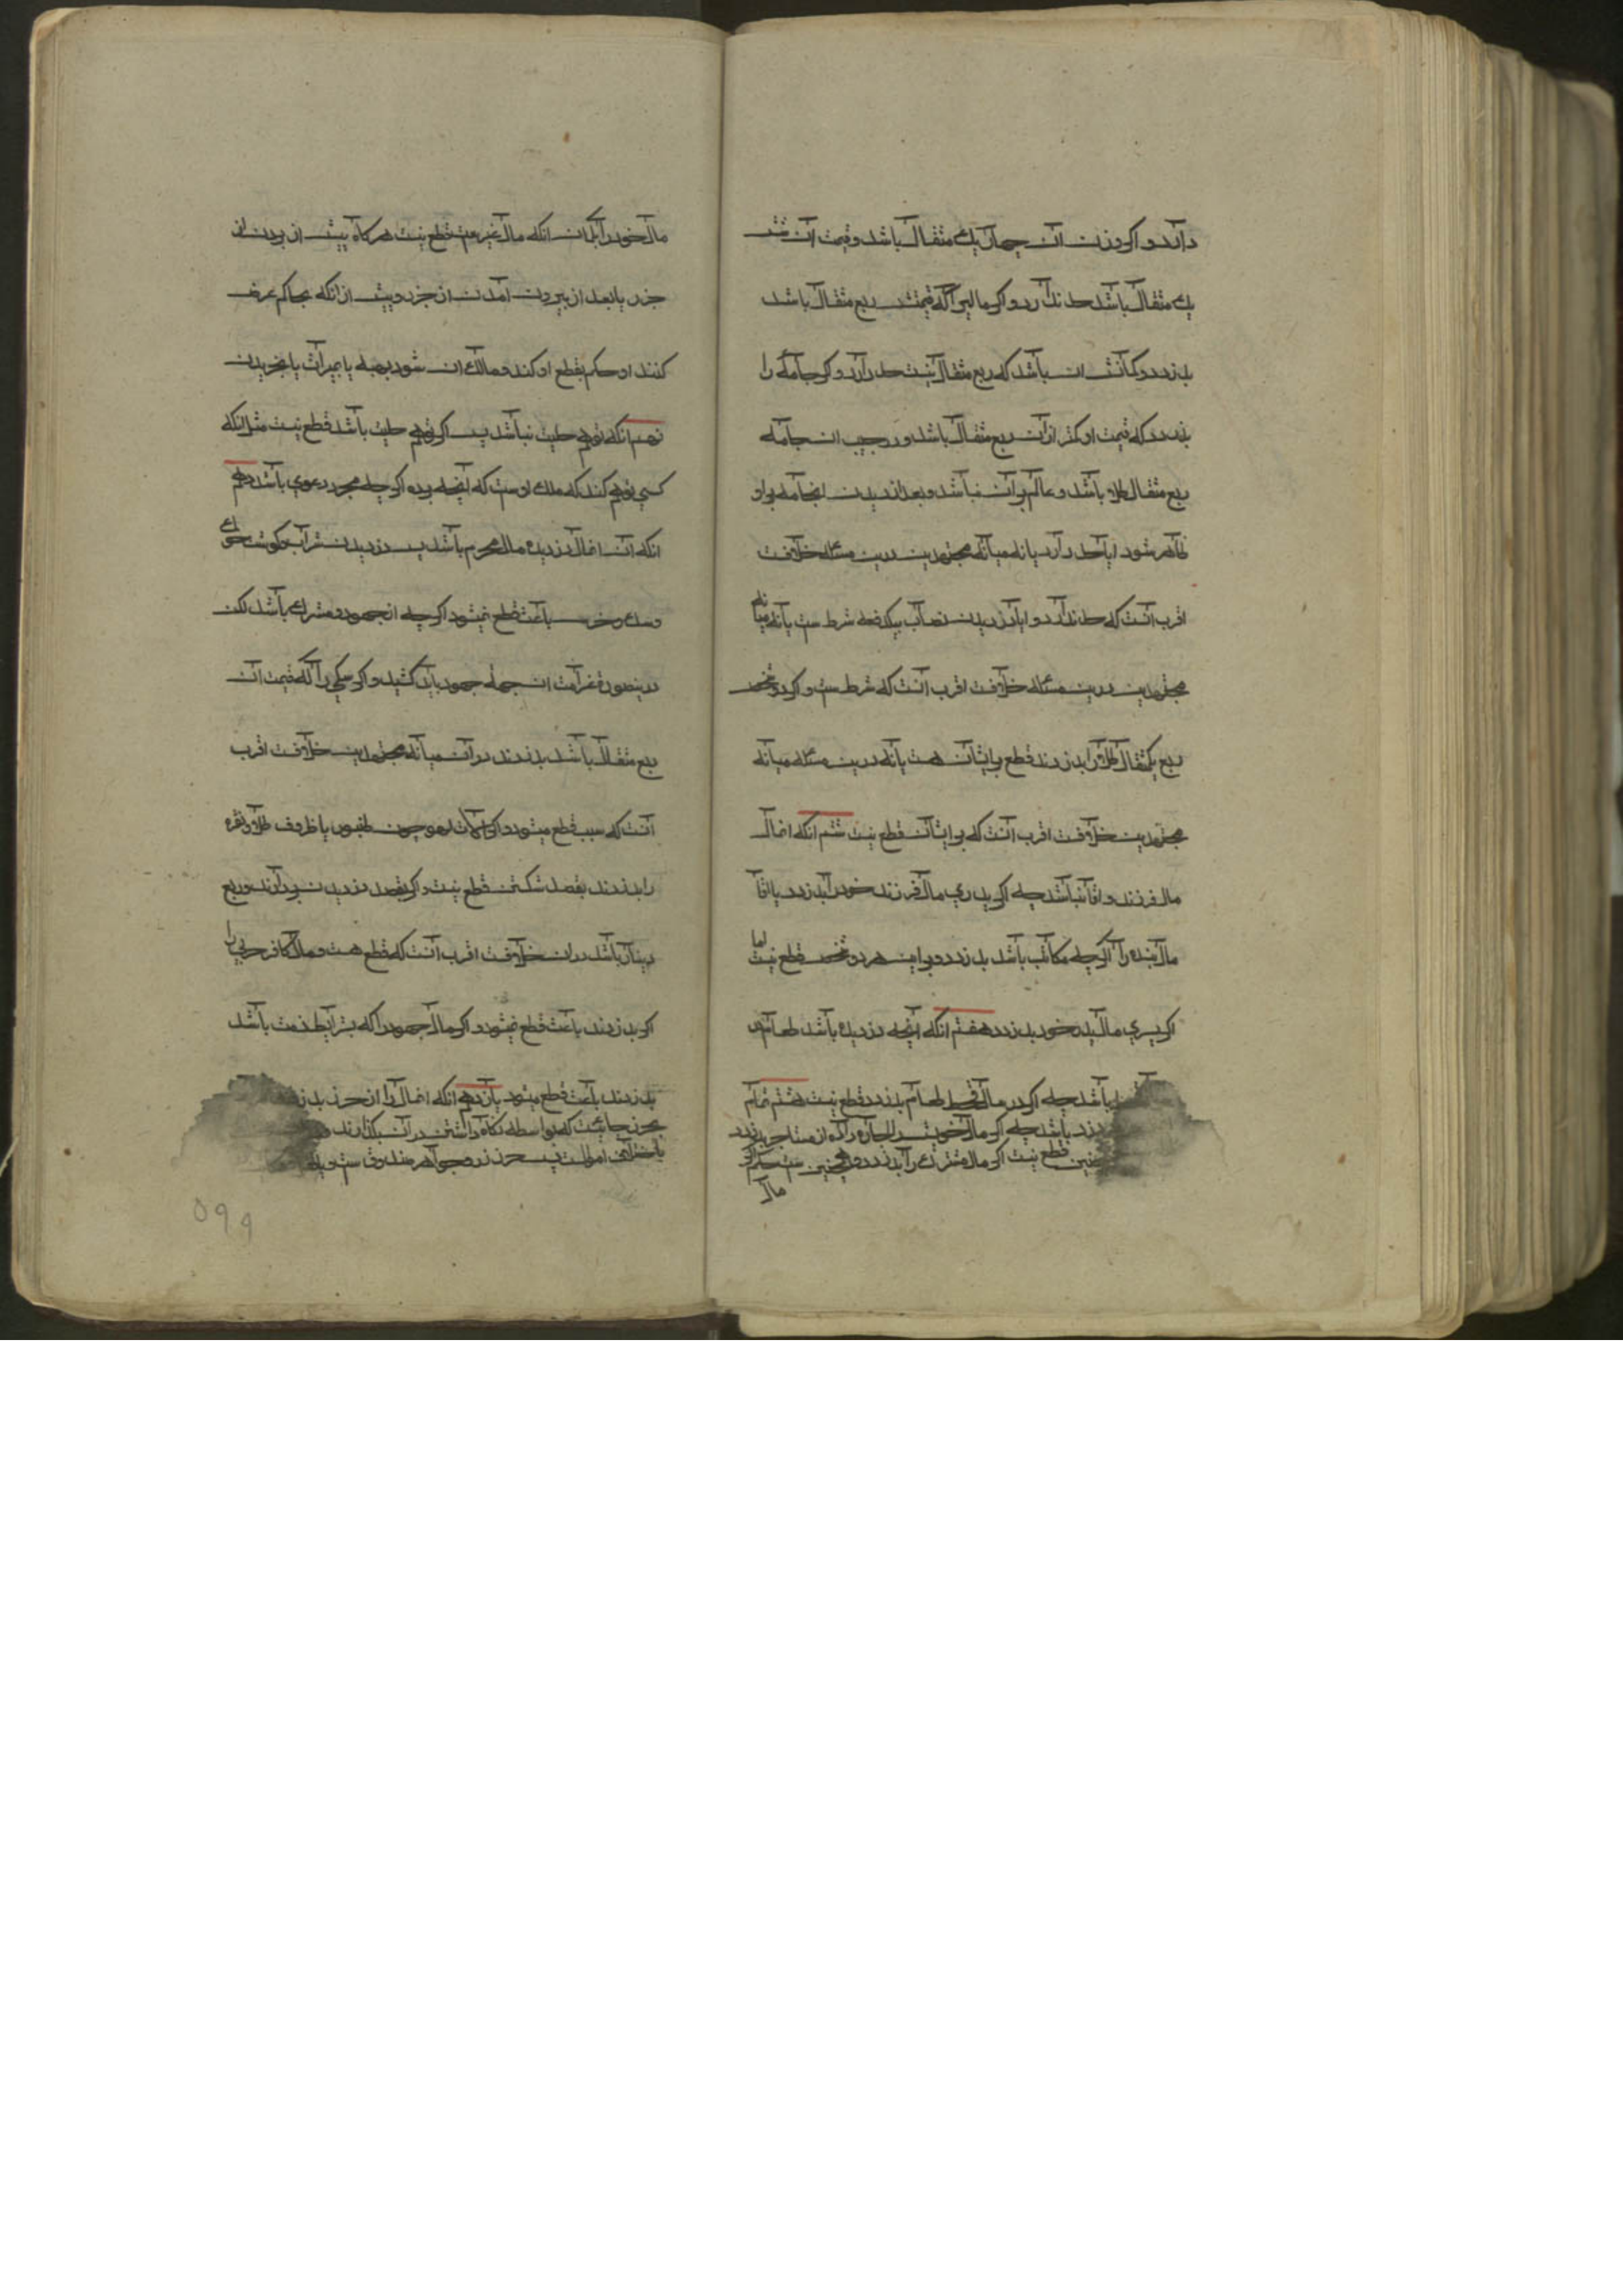 دارد و اکر وزن آن چهار یک مثقال باشد و قیمت آن
یک مثقال باشد حد ندارد و اکر مالیرا که قیمتش ربع مثقال باشد
بدزدد و کمانش ان باشد که ربع مثقال نیست حد دارد و اکر جامهٔ را
بدزدد که قیمت او کمتر از آن ربع مثقال باشد و در جیب ان جامه
ربع مثقال طلا باشد و عالم بر آن نباشد و بعد از دزدیدن انجامه بر او
ظاهر شود ایا حد دارد یا نه میانه مجتهدین درین مسئله خلافست
اقرب آنست که حد ندارد و ایا دزدیدن نصاب بیکدفعه شرط ست یا نه میانه
مجتهدین درین مسئله خلافست اقرب آنست که شرط ست و اکر دو شخص
ربع یکمثقال طلا را بدزدند قطع بر ایشان هست یا نه درین مسئله میانه
مجتهدین خلافست اقرب آنست که بر ایشان قطع نیست ششم انکه انمال
مال فرزند و اقا نباشد چه اکر پدری مال فرزند خود را بدزدد یا اقا
مال بنده را اکرچه مکاتب باشد بدزدد بر این هر دو شخص قطع نیست اما
اکر پسری مال پدر خود بدزدد هفتم انکه آنچه دزدیده باشد طعام در
باشد چه اکر در سال قحط طعام بدزدد قطع نیست هشتم تمام
دزد باشد چه اکر مال خویش را اجاره داده از مستاجر بدزدد
قطع نیست اکر مال مشترک را بدزدد و همچنین ست حکم اکر
مال
مال خود را بکمان انکه مال غیر ست قطع نیست هرکاه پیش از بردن از
حرز یا بعد از بیرون آمدن از حرز و پیش از انکه بحاکم عرض
کنند او حکم بقطع او کند و مالک ان شود بهبه یا بمیراث یا بخریدن
نهم انکه توهم حلیت نباشد پس اکر توهم حلیت باشد قطع نیست مثل انکه
کسی توهم کند که ملک اوست که آنچه برده اکرچه مجرد دعوی باشد دهم
انکه آن انمال دزدیده مال محرم باشد پس دزدیدن شراب و کوشت خوک
و سک و خرس باعث قطع نمیشود اکرچه از جهود و مشرک باشد لکن
درینصورة غرامت ان بجهة جهود باید کشید و اکر سکی را که قیمت آن
ربع مثقال باشد بدزدند در آن میانه مجتهدین خلافست اقرب
آنست که سبب قطع میشود و اکر آلات لهو چون طنبور یا ظروف طلا و نقره
را بدزدند بقصد شکستن قطع نیست و اکر بقصد دزدیدن بردارند و ربع
دینار باشد در ان خلافست اقرب آنست که قطع هست و مال کافر حربی را
اکر بدزدند باعث قطع نمیشود و اکر مال جهود را که بشرایط ذمت باشد
بدزدند باعث قطع میشود یازدهم انکه انمال را از حرز بدزدند
حرز جائیست که بواسطه نکاه داشتن در آن بکذارند
باختلاف اموالست پس حرز زر و جواهر صندوق ست
۵۹۹